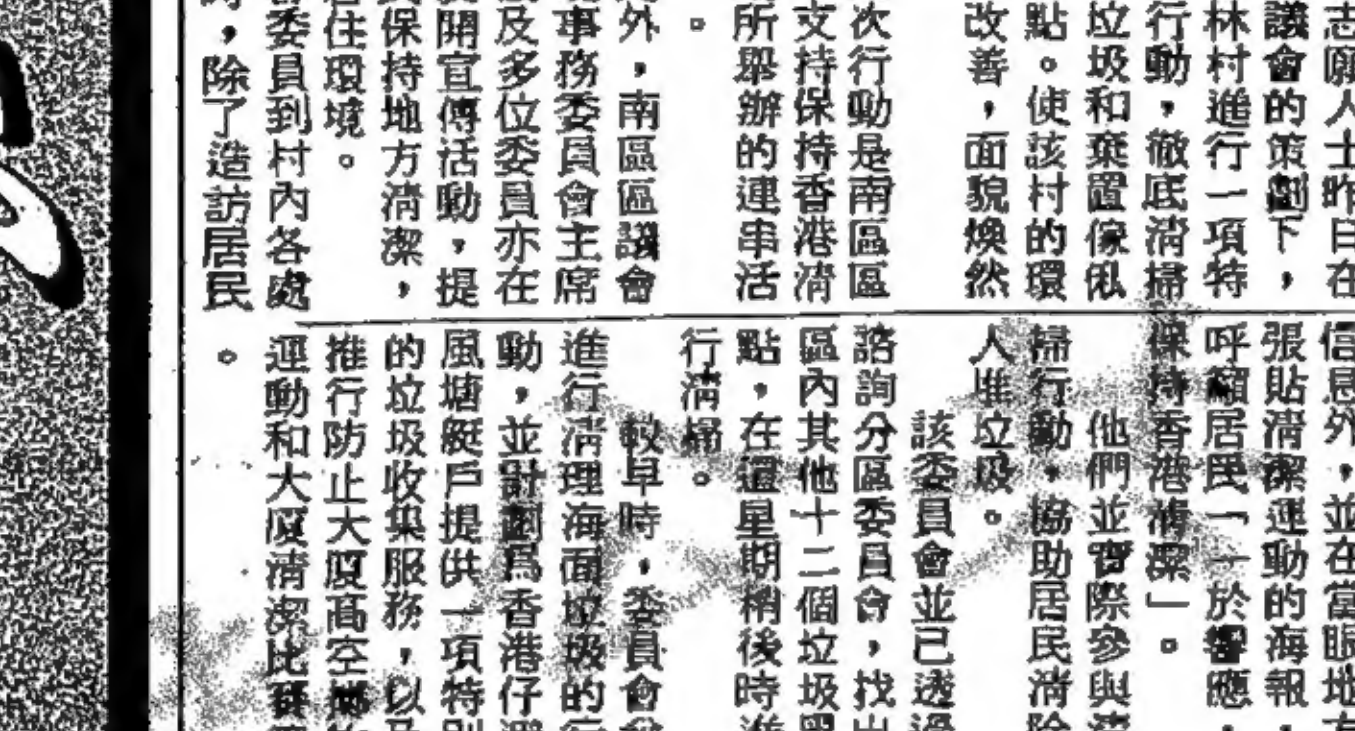 志願人士昨日在
議會的策劃下，
林村進行一項特
行動，徹底清掃
垃圾和棄置傢俬
點。使該村的環
改善，面貌煥然
次行動是南區區
支持保持香港清
所舉辦的連串活
。
外，南區區議會
事務委員會主席
及多位委員亦在
開宣傳活動，提
保持地方清潔，
住環境。
委員到村內各處
，除了造訪居民
信息外，並在當眼地方
張貼清潔運動的海報，
呼籲居民「一於響應，
保持香港清潔」。
他們並實際參與清
掃行動，協助居民清除
人堆垃圾。
該委員會並已透過
諮詢分區委員會，找出
區內其他十二個垃圾黑
點，在這星期稍後時進
行清掃。
較早時，委員會曾
進行清理海面垃圾的行
動，並計劃為香港仔避
風塘艇戶提供一項特別
的垃圾收集服務，以及
推行防止大廈高空擲物
運動和大廈清潔比賽
。